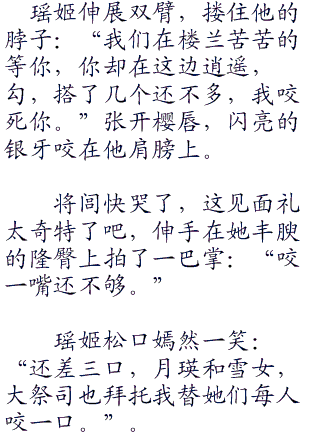 瑶姬伸展双臂，搂住他的
脖子：“我们在楼兰苦苦的
等你，你却在这边逍遥，
勾，搭了几个还不多，我咬
死你。”张开樱唇，闪亮的
银牙咬在他肩膀上。
将闾快哭了，这见面礼
太奇特了吧，伸手在她丰腴
的隆臀上拍了一巴掌：“咬
一嘴还不够。”
瑶姬松口嫣然一笑：
“还差三口，月瑛和雪女，
大祭司也拜托我替她们每人
咬一口。”。